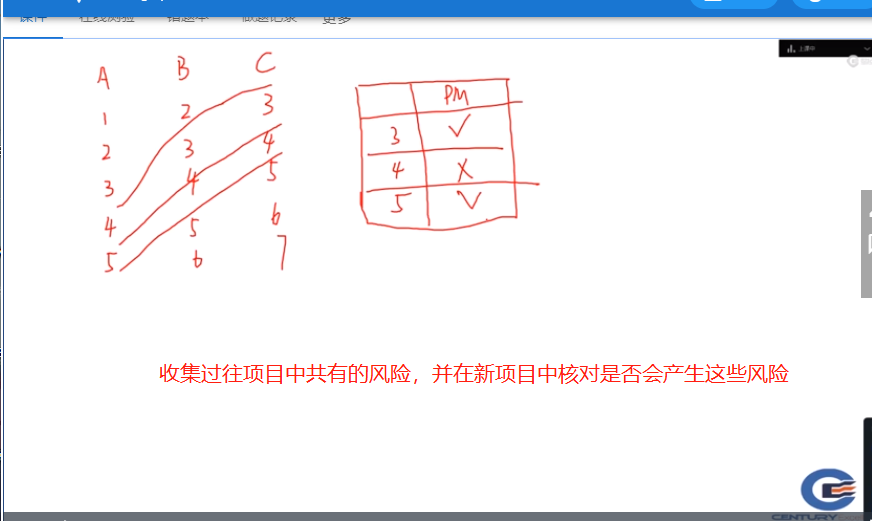 课件 在线测验 错题本 做题记录 更多
上课中
A B C
1 2 3
2 3 4
3 4 5
4 5 6
5 6 7
PM
3 √
4 X
5 √
收集过往项目中共有的风险，并在新项目中核对是否会产生这些风险
CENTURY